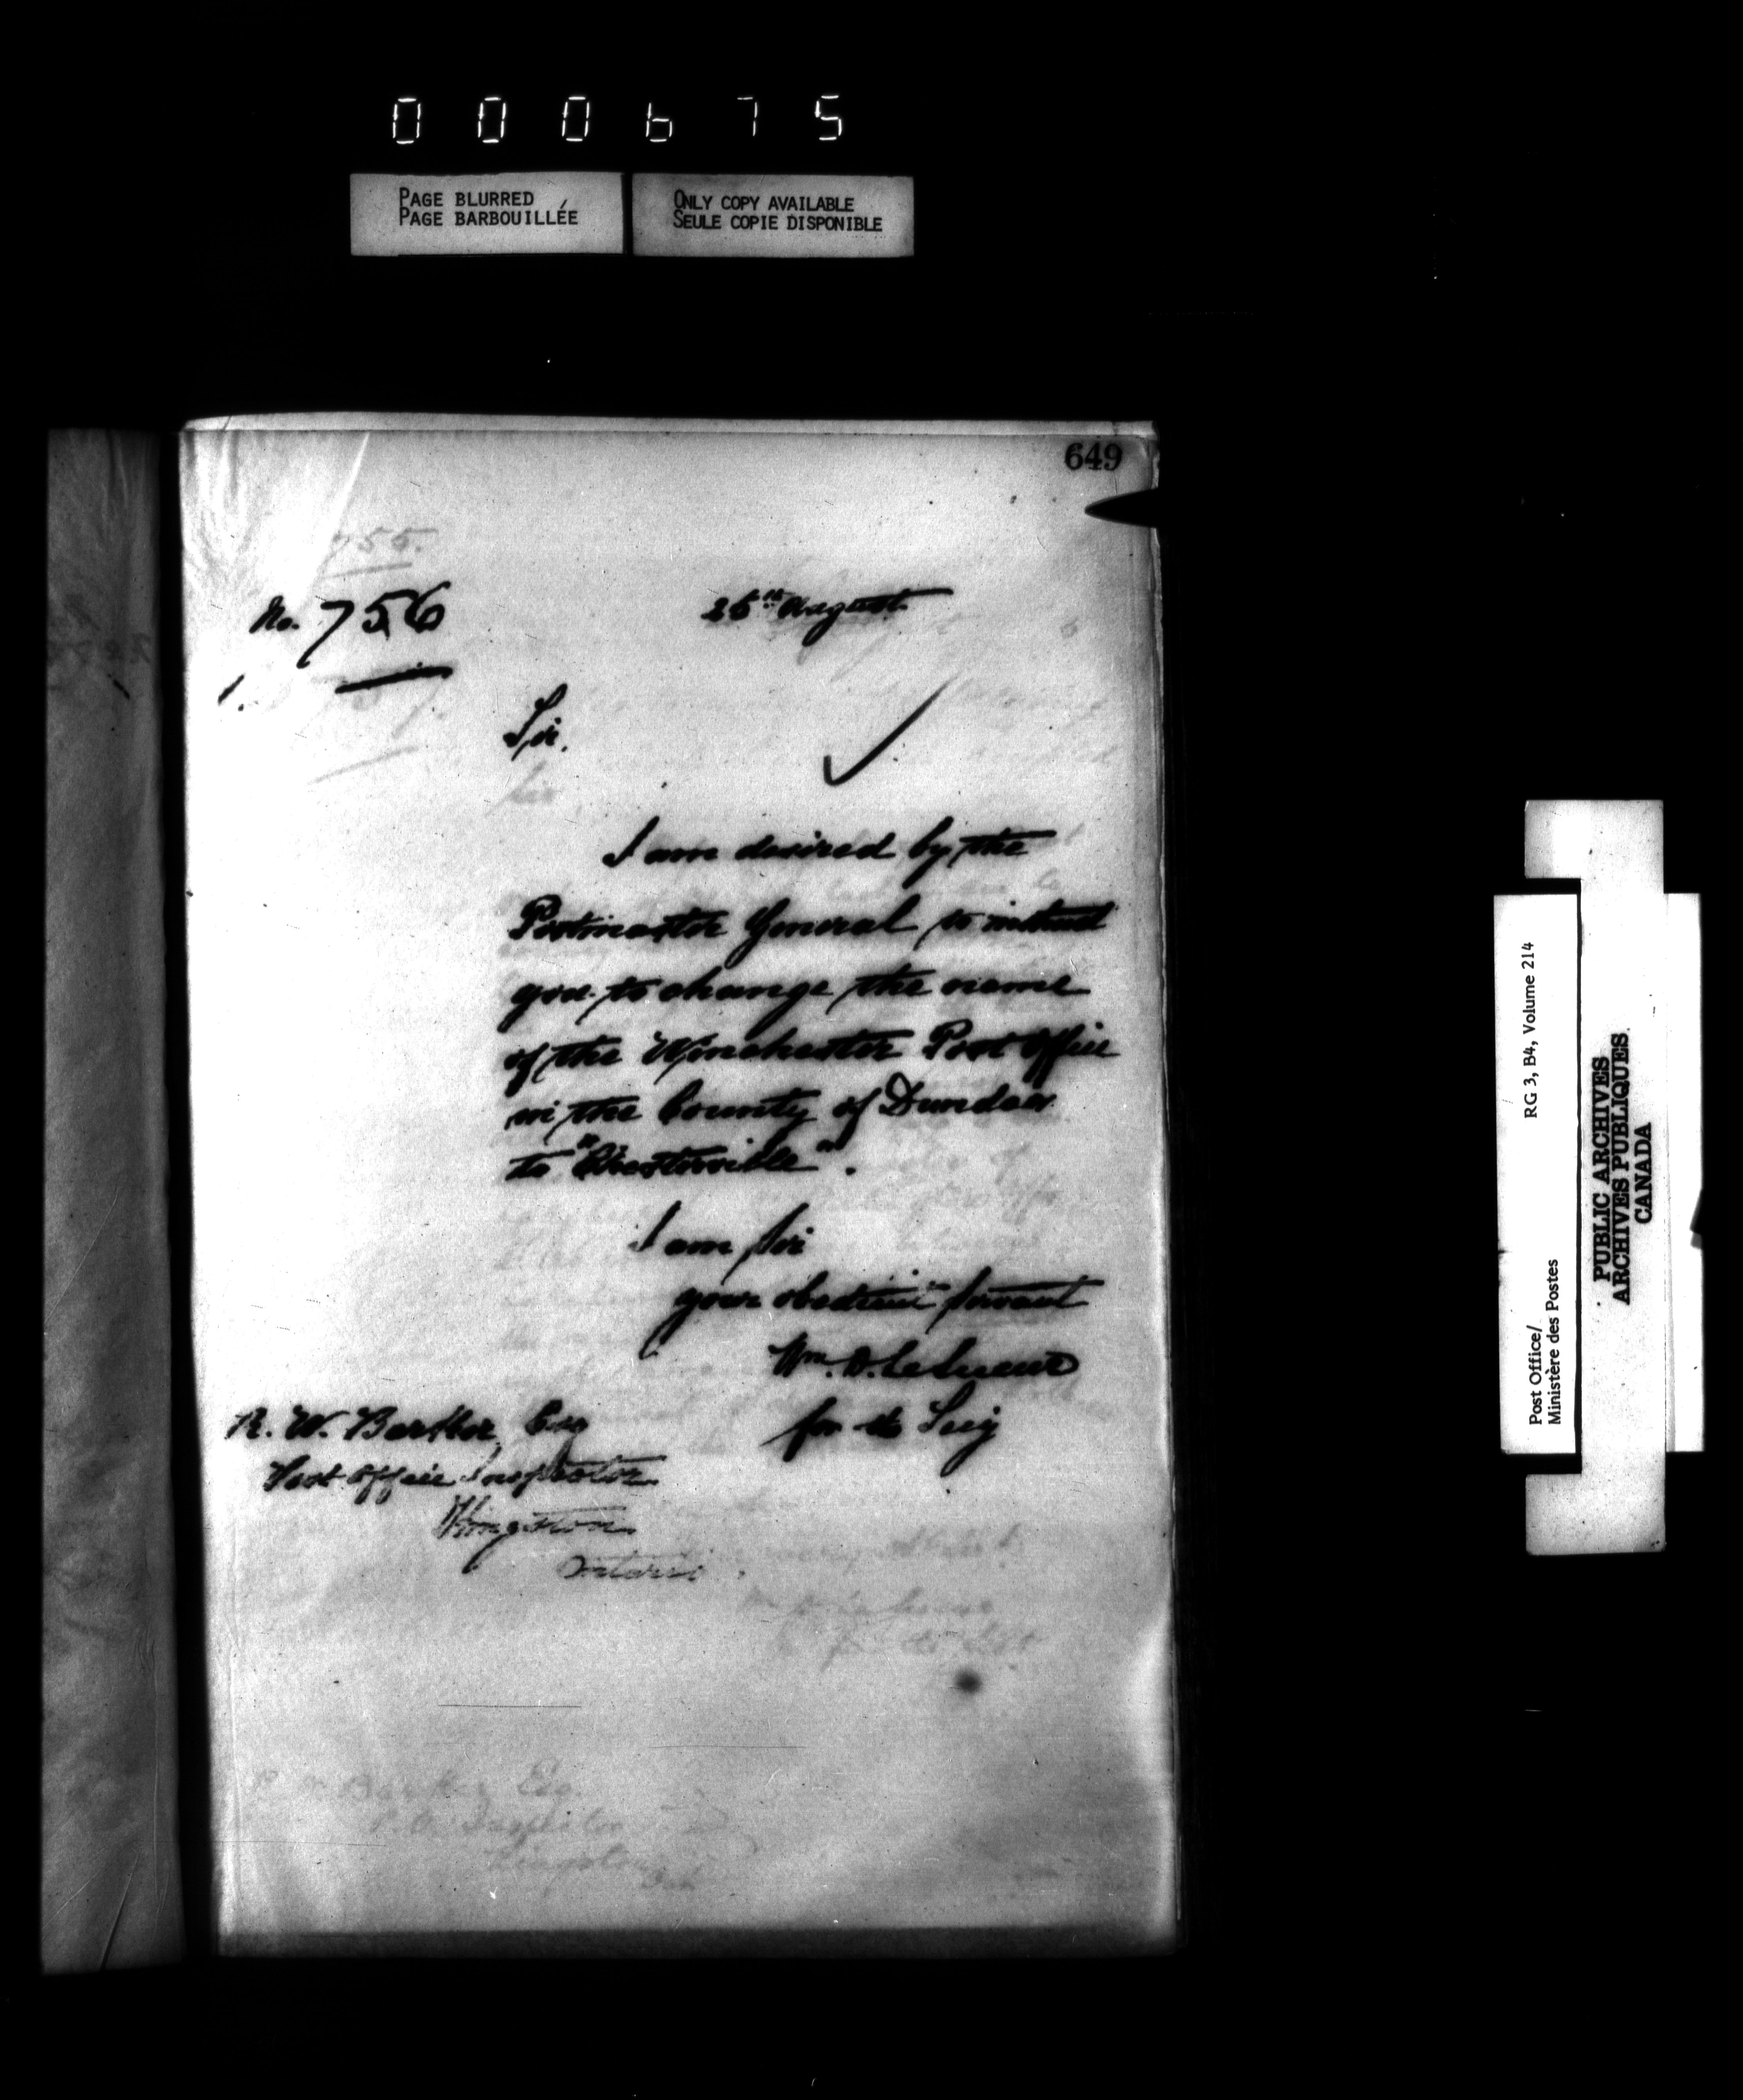 000675
PAGE BLURRED
PAGE BARBOUILLÉE
ONLY COPY AVAILABLE
SEULE COPIE DISPONIBLE
649
755.
No. 756
25th August
1.
Sir,
Sir
I am desired by the
Postmaster General to instruct
you to change the name
of the Winchester Post Office
in the County of Dundas
to "Chesterville".
I am Sir
your obedient Servant
Wm. D. LeSueur
for the Secy
R. W. Barker, Esq
Post Office Inspector
Kingston
Ontario
R W Barker Esq.
P.O. Inspector
Kingston
Ont
Post Office/
Ministère des Postes
RG 3, B4, Volume 214
PUBLIC ARCHIVES
ARCHIVES PUBLIQUES
CANADA